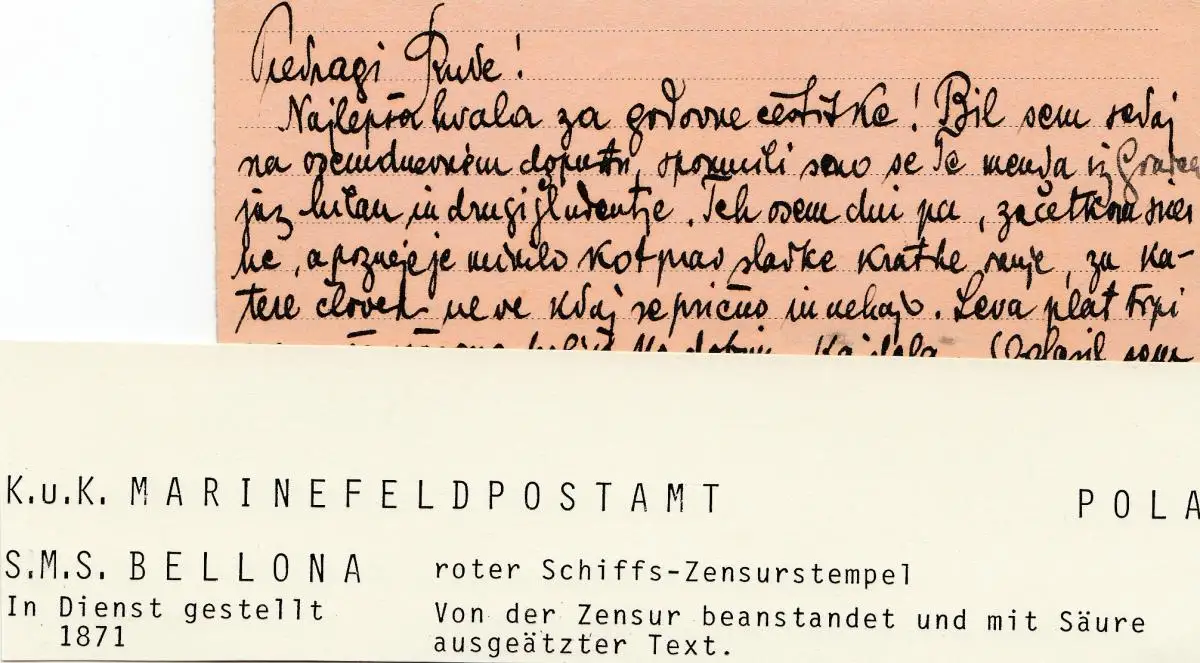 Predragi Rude!
Najlepša hvala za godovne čestitke! Bil sem sedaj
na osemdnevnem dopustu, spomnili smo se Te menda iz
jaz in drugi študentje. Teh osem dni pa, začetkoma
a pozneje je minilo kot prav sladke kratke sanje, za ka-
tere človek ne ve kdaj se prično in nehajo. Leva plat trpi
K.u.K. MARINEFELDPOSTAMT POLA
S.M.S. BELLONA roter Schiffs-Zensurstempel
In Dienst gestellt Von der Zensur beanstandet und mit Säure
1871 ausgeätzter Text.